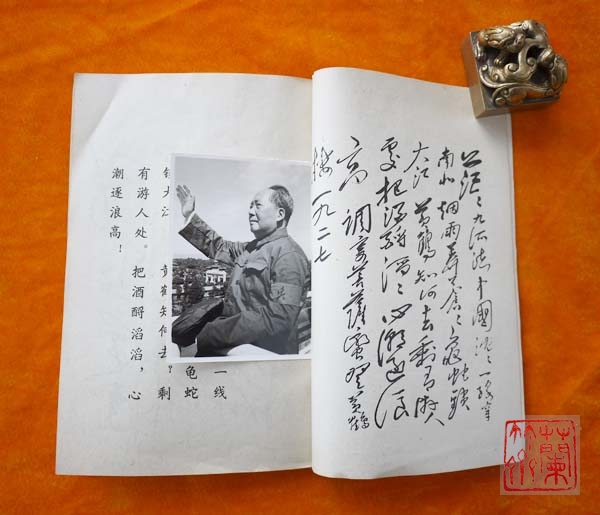 茫〻九派流中國沉〻一线穿
南北 烟雨莽苍〻龟蛇锁
大江 黄鹤知何去剩有游人
处把酒酹滔〻 心潮逐浪
高 调寄菩萨蛮 登黄鹤
楼 一九二七
一线
龟蛇
锁大江 黄鹤知何去？剩
有游人处。 把酒酹滔滔，心
潮逐浪高！
蘭